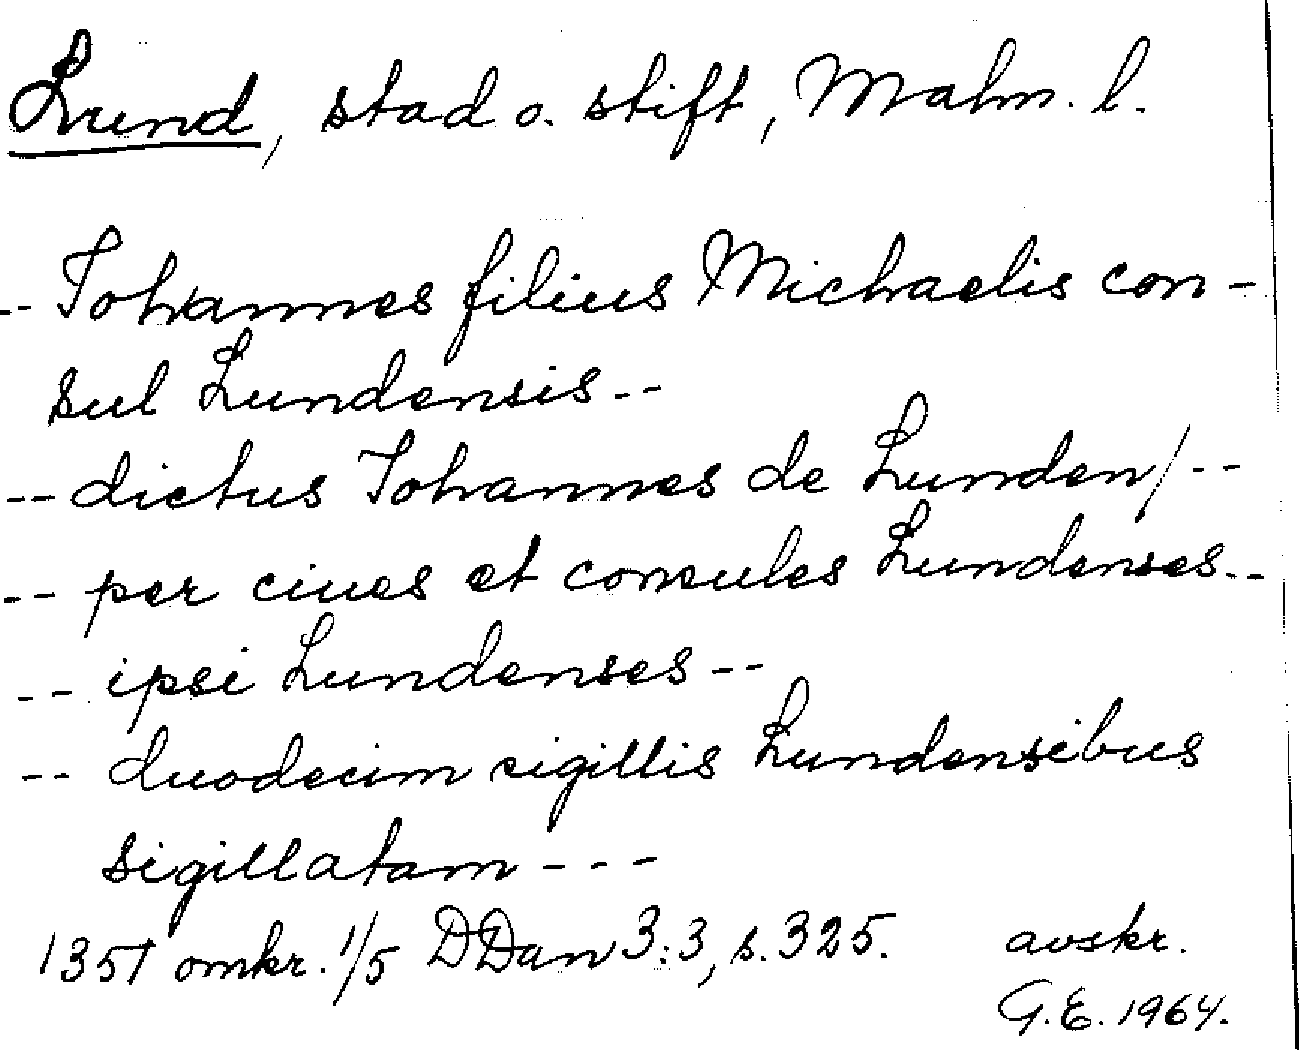 Lund, stad o. stift, Malm. l.
-- Iohannes filius Michaelis con-
sul Lundensis --
-- dictus Iohannes de Lunden/ --
-- per ciues et consules Lundenses --
-- ipsi Lundenses --
-- duodecim sigillis Lundensibus
sigillatam ---
1351 omkr. 1/5 DDan 3:3, s. 325. avskr.
G.E. 1964.